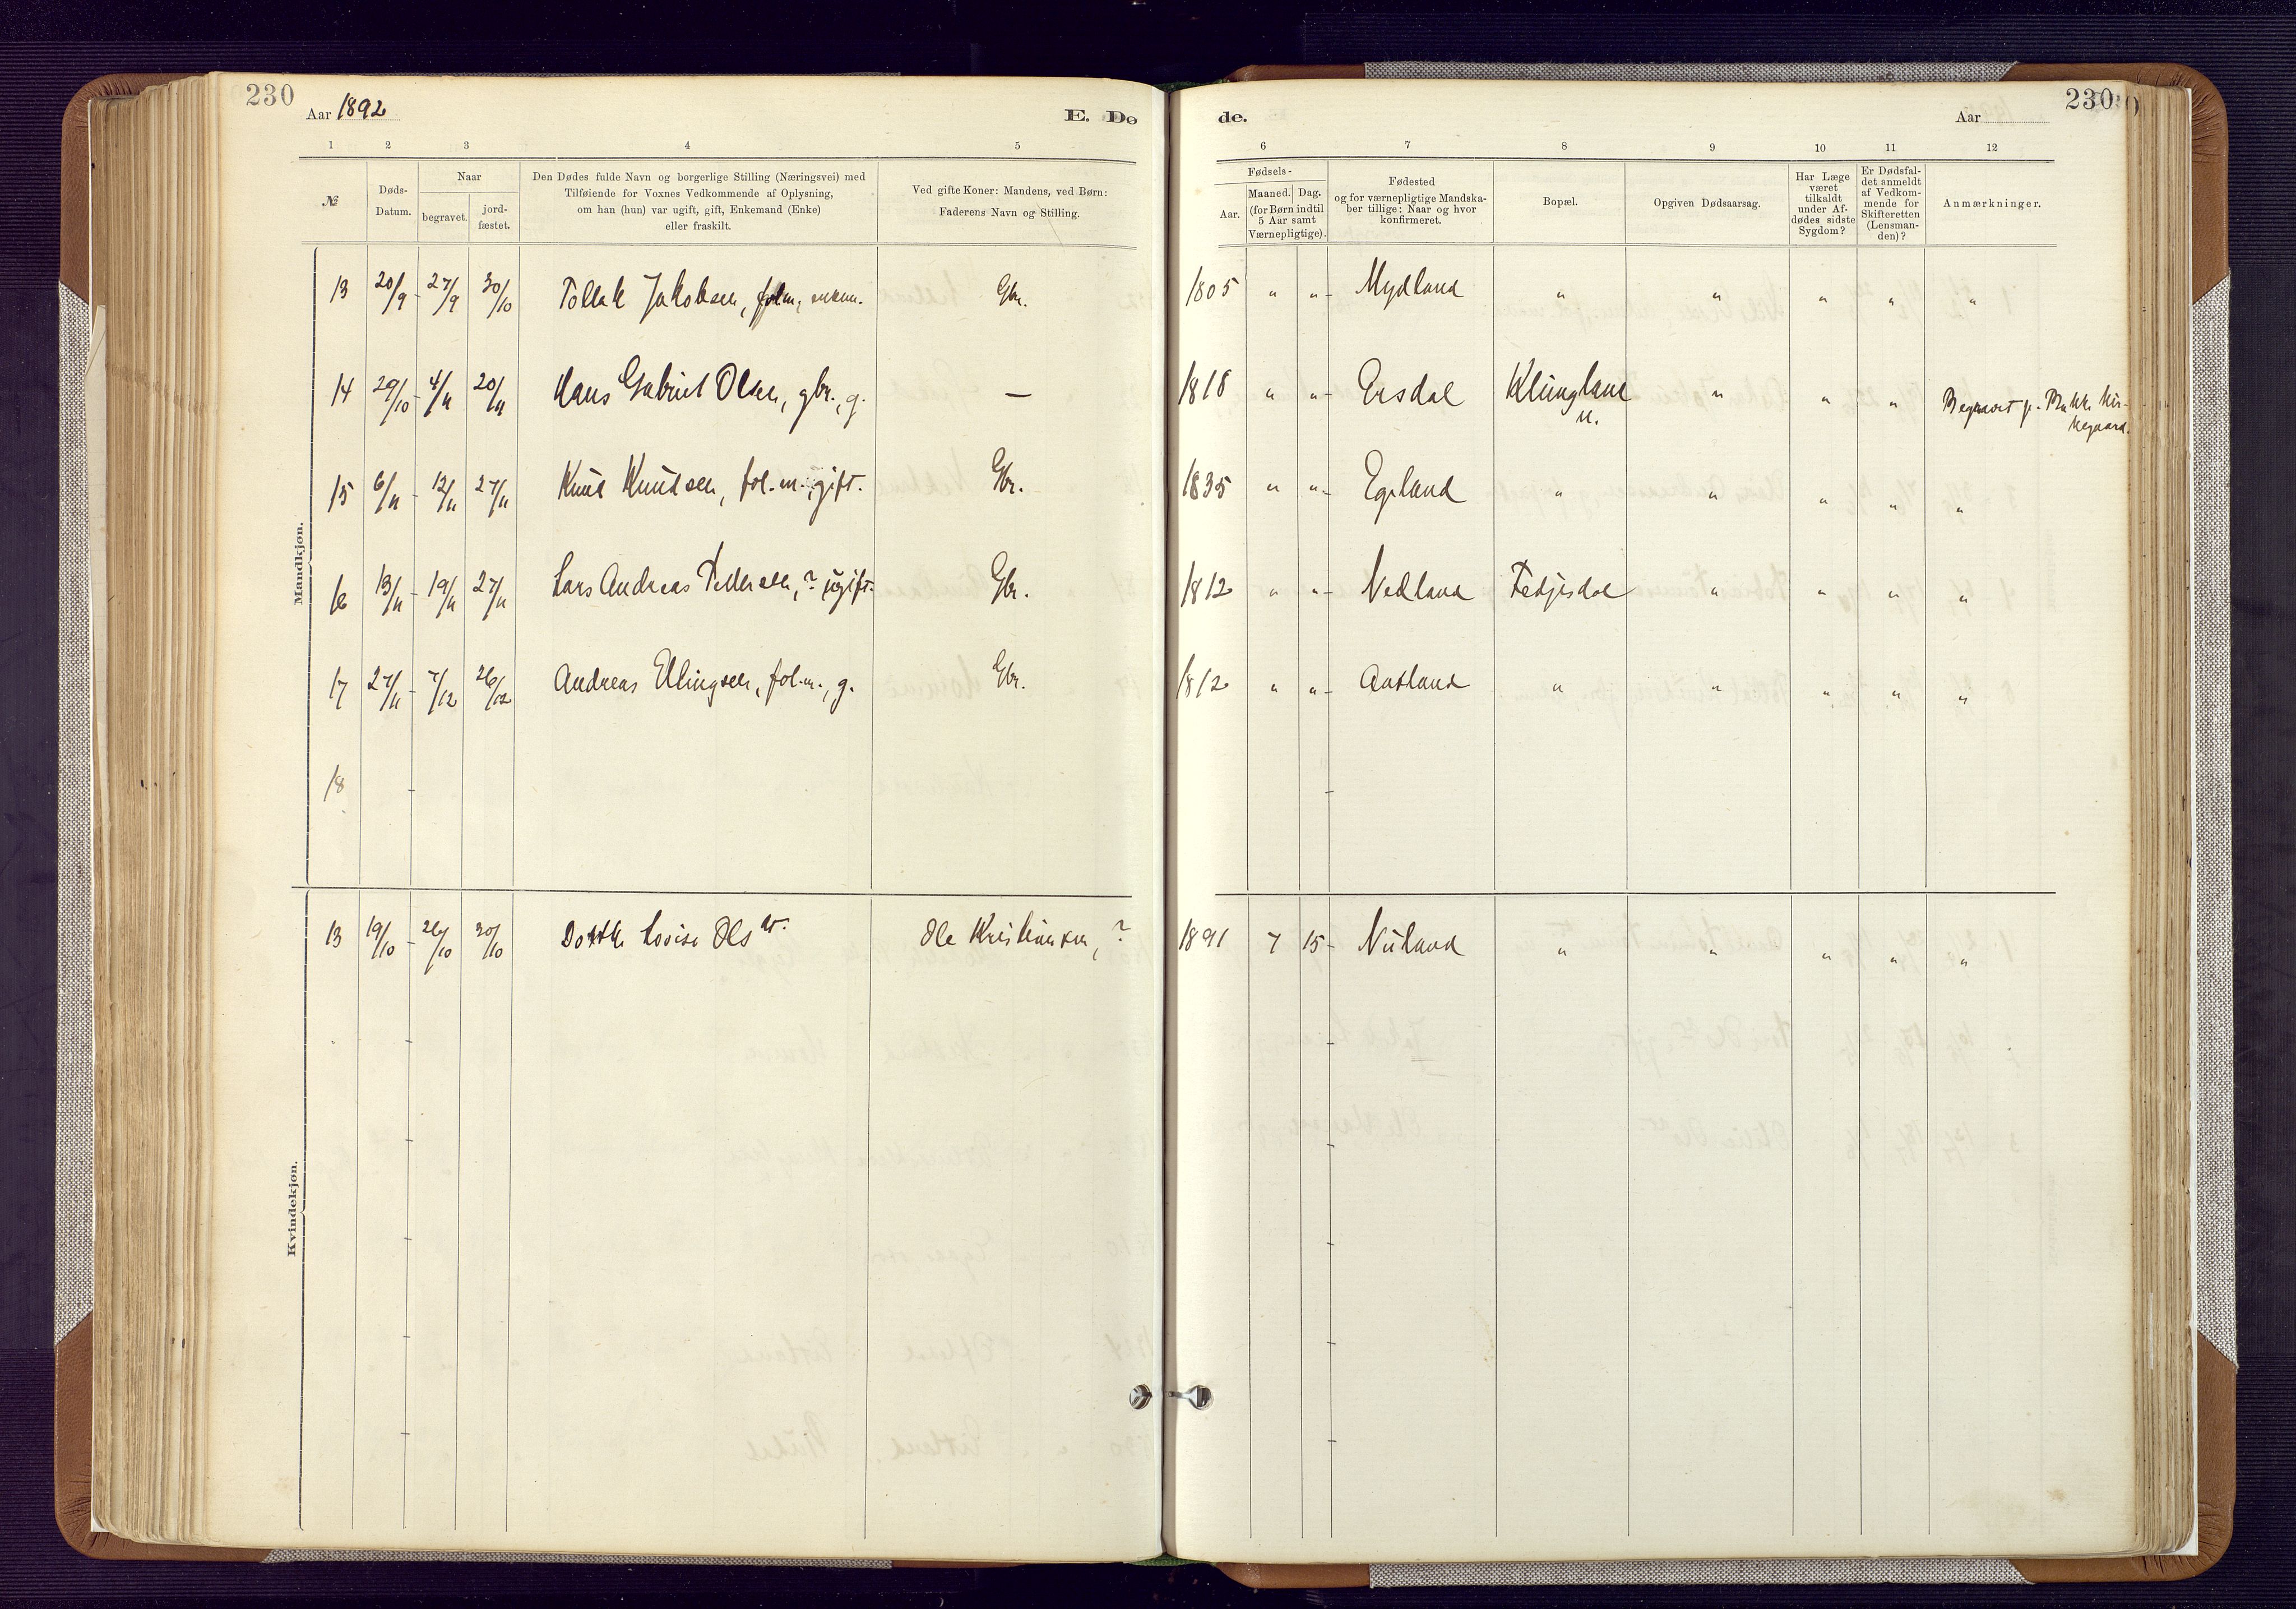 230
Aar 1892
E. Dø
de.
Aar
230
1 2 3 4 5
6 7 8 9 10 11 12
№
Døds-
Datum.
Naar
begravet.
jord-
fæstet.
Den Dødes fulde Navn og borgerlige Stilling (Næringsvei) med
Tilføiende for Voxnes Vedkommende af Oplysning,
om han (hun) var ugift, gift, Enkemand (Enke)
eller fraskilt.
Ved gifte Koner: Mandens, ved Børn:
Faderens Navn og Stilling.
Fødsels-
Aar.
Maaned. Dag.
(for Børn indtil
5 Aar samt
Værnepligtige).
Fødested
og for værnepligtige Mandska-
ber tillige: Naar og hvor
konfirmeret.
Bopæl.
Opgiven Dødsaarsag.
Har Læge
været
tilkaldt
under Af-
dødes sidste
Sygdom?
Er Dødsfal-
det anmeldt
af Vedkom-
mende for
Skifteretten
(Lensman-
den)?
Anmærkninger.
Mandkjøn.
13 20/9 - 27/9 30/10 Tollak Jakobsen, folm, enkem. Gbr. 1805 " " - Mydland " " " " "
14 29/10 - 4/11 20/11 Hans Gabriel Olsen, gbr., g. — 1818 " " - Ersdal Klungland " " " Begravet p. Bakke Kir-
n. kegaard.
15 6/11 - 12/11 27/11 Knud Knudsen, fol.m. gift. Gbr. 1835 " " - Egeland " " " " "
16 13/11 - 19/11 27/11 Lars Andreas Pedersen, ? ugift. Gbr. 1812 " " - Nedland Fedjedal " " " "
17 27/11 - 7/12 26/12 Andreas Ellingsen, fol.m., g. Gbr. 1812 " " - Aatland " " " " "
18
Kvindekjøn.
13 19/10 - 26/10 30/10 Dorthe Lovise Olsdr. Ole Kristiansen, ? 1891 7 15 - Nuland " " " " "